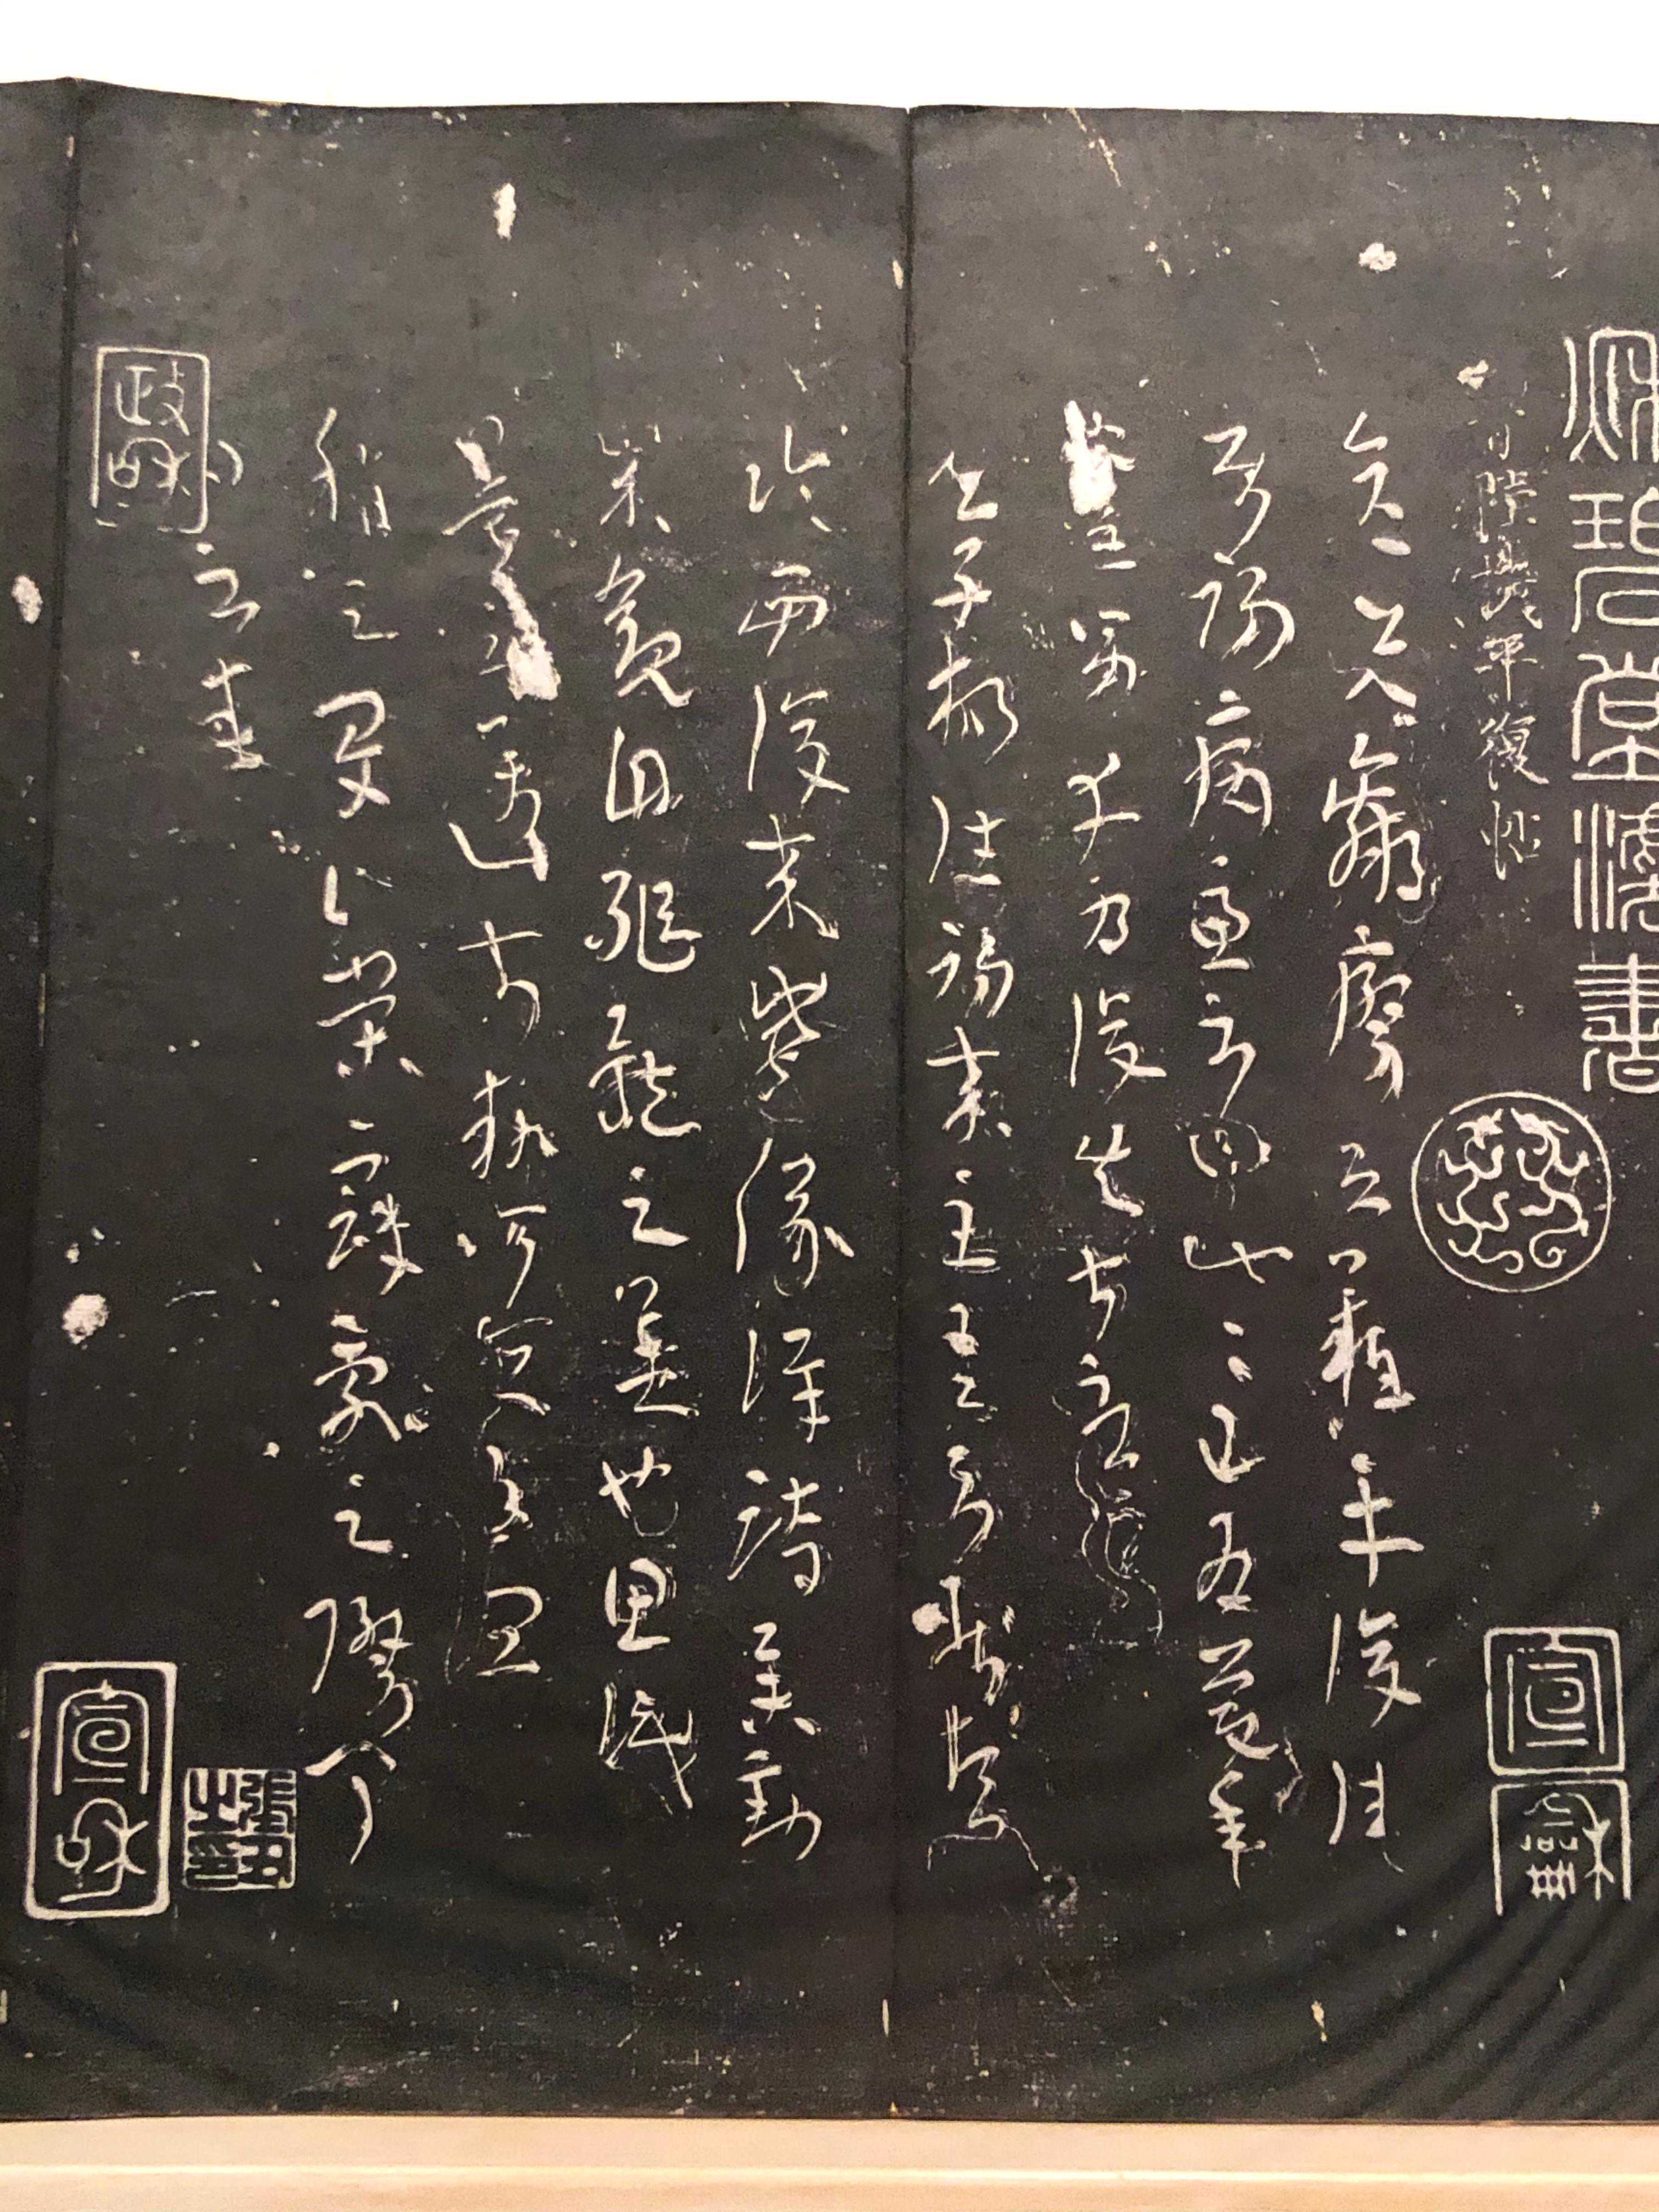 秋碧堂法書
晉陸機平復帖
彥先羸瘵恐難平復往屬
初病慮不止此此已為慶承
使唯男幸為復失前憂耳
吳子楊往初來主吾不能盡
臨西復來威儀詳跱舉動
成觀自軀體之美也思識
量之邁前執所恒有宜
稱之夏伯榮寇亂之際聞
問不悉
宣龢
政和
宣和